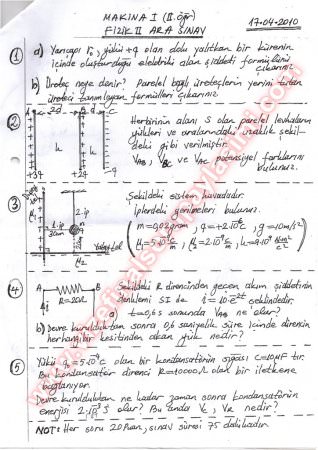 MAKİNA I (II. ÖĞR)
FİZİK II ARA SINAV
17-04-2010
1 a) Yarıçapı r₀, yükü +q olan dolu yalıtkan bir kürenin
içinde oluşturduğu elektriki alan şiddeti formülünü
çıkarınız.
b) Üreteç neye denir? Parelel bağlı üreteçlerin yerini tutan
üreteci tanımlayan formülleri çıkarınız.
2 A 2d B d C
h h
+3q +2q -q
Herbirinin alanı S olan parelel levhaların
yükleri ve aralarındaki uzaklık şekil-
deki gibi verilmiştir.
V_AB, V_BC ve V_AC potansiyel farklarını
bulunuz.
3 Şekildeki sistem havadadır.
İplerdeki gerilmeleri bulunuz.
1.ip
2.ip
30cm
m
(m=0,02gram, q=+2·10⁻⁶C, g=10m/s²)
4 A R=20Ω B
Şekildeki R direncinden geçen akım şiddetinin
denklemi SI de i=10·e⁻²ᵗ şeklindedir.
t=0,6s sonunda V_AB ne olur?
b) Devre kurulduktan sonra 0,6 saniyelik süre içinde direncin
herhangi bir kesitinden akan yük nedir?
5 olan bir kondansatörün sığası C=10μF tır.
Bu kondansatör direnci R=10000Ω olan bir iletkene
bağlanıyor.
Devre kurulduktan ne kadar zaman sonra kondansatörün
enerjisi olur? Bu anda V_C, V_R nedir?
NOT: Her soru 20 Puan, sınav süresi 75 dakikadır.